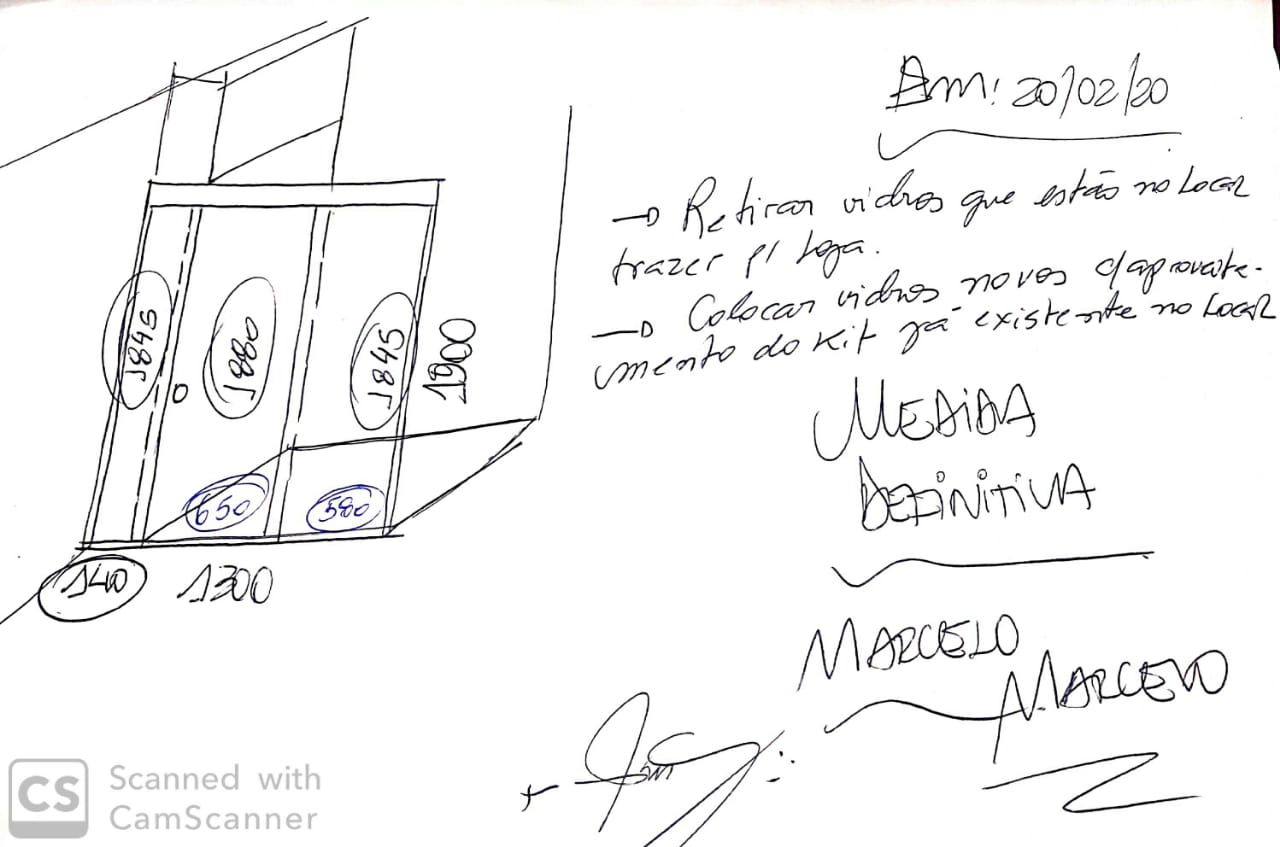 Em: 20/02/20
→ Retirar vidros que estão no Local
trazer p/ Loja.
→ Colocar vidros novos c/aproveita-
mento do Kit já existente no Local
MEDIDA
DEFINITIVA
MARCELO
MARCELO
1845
1880
1845
1900
650
580
140
1300
CS
Scanned with
CamScanner